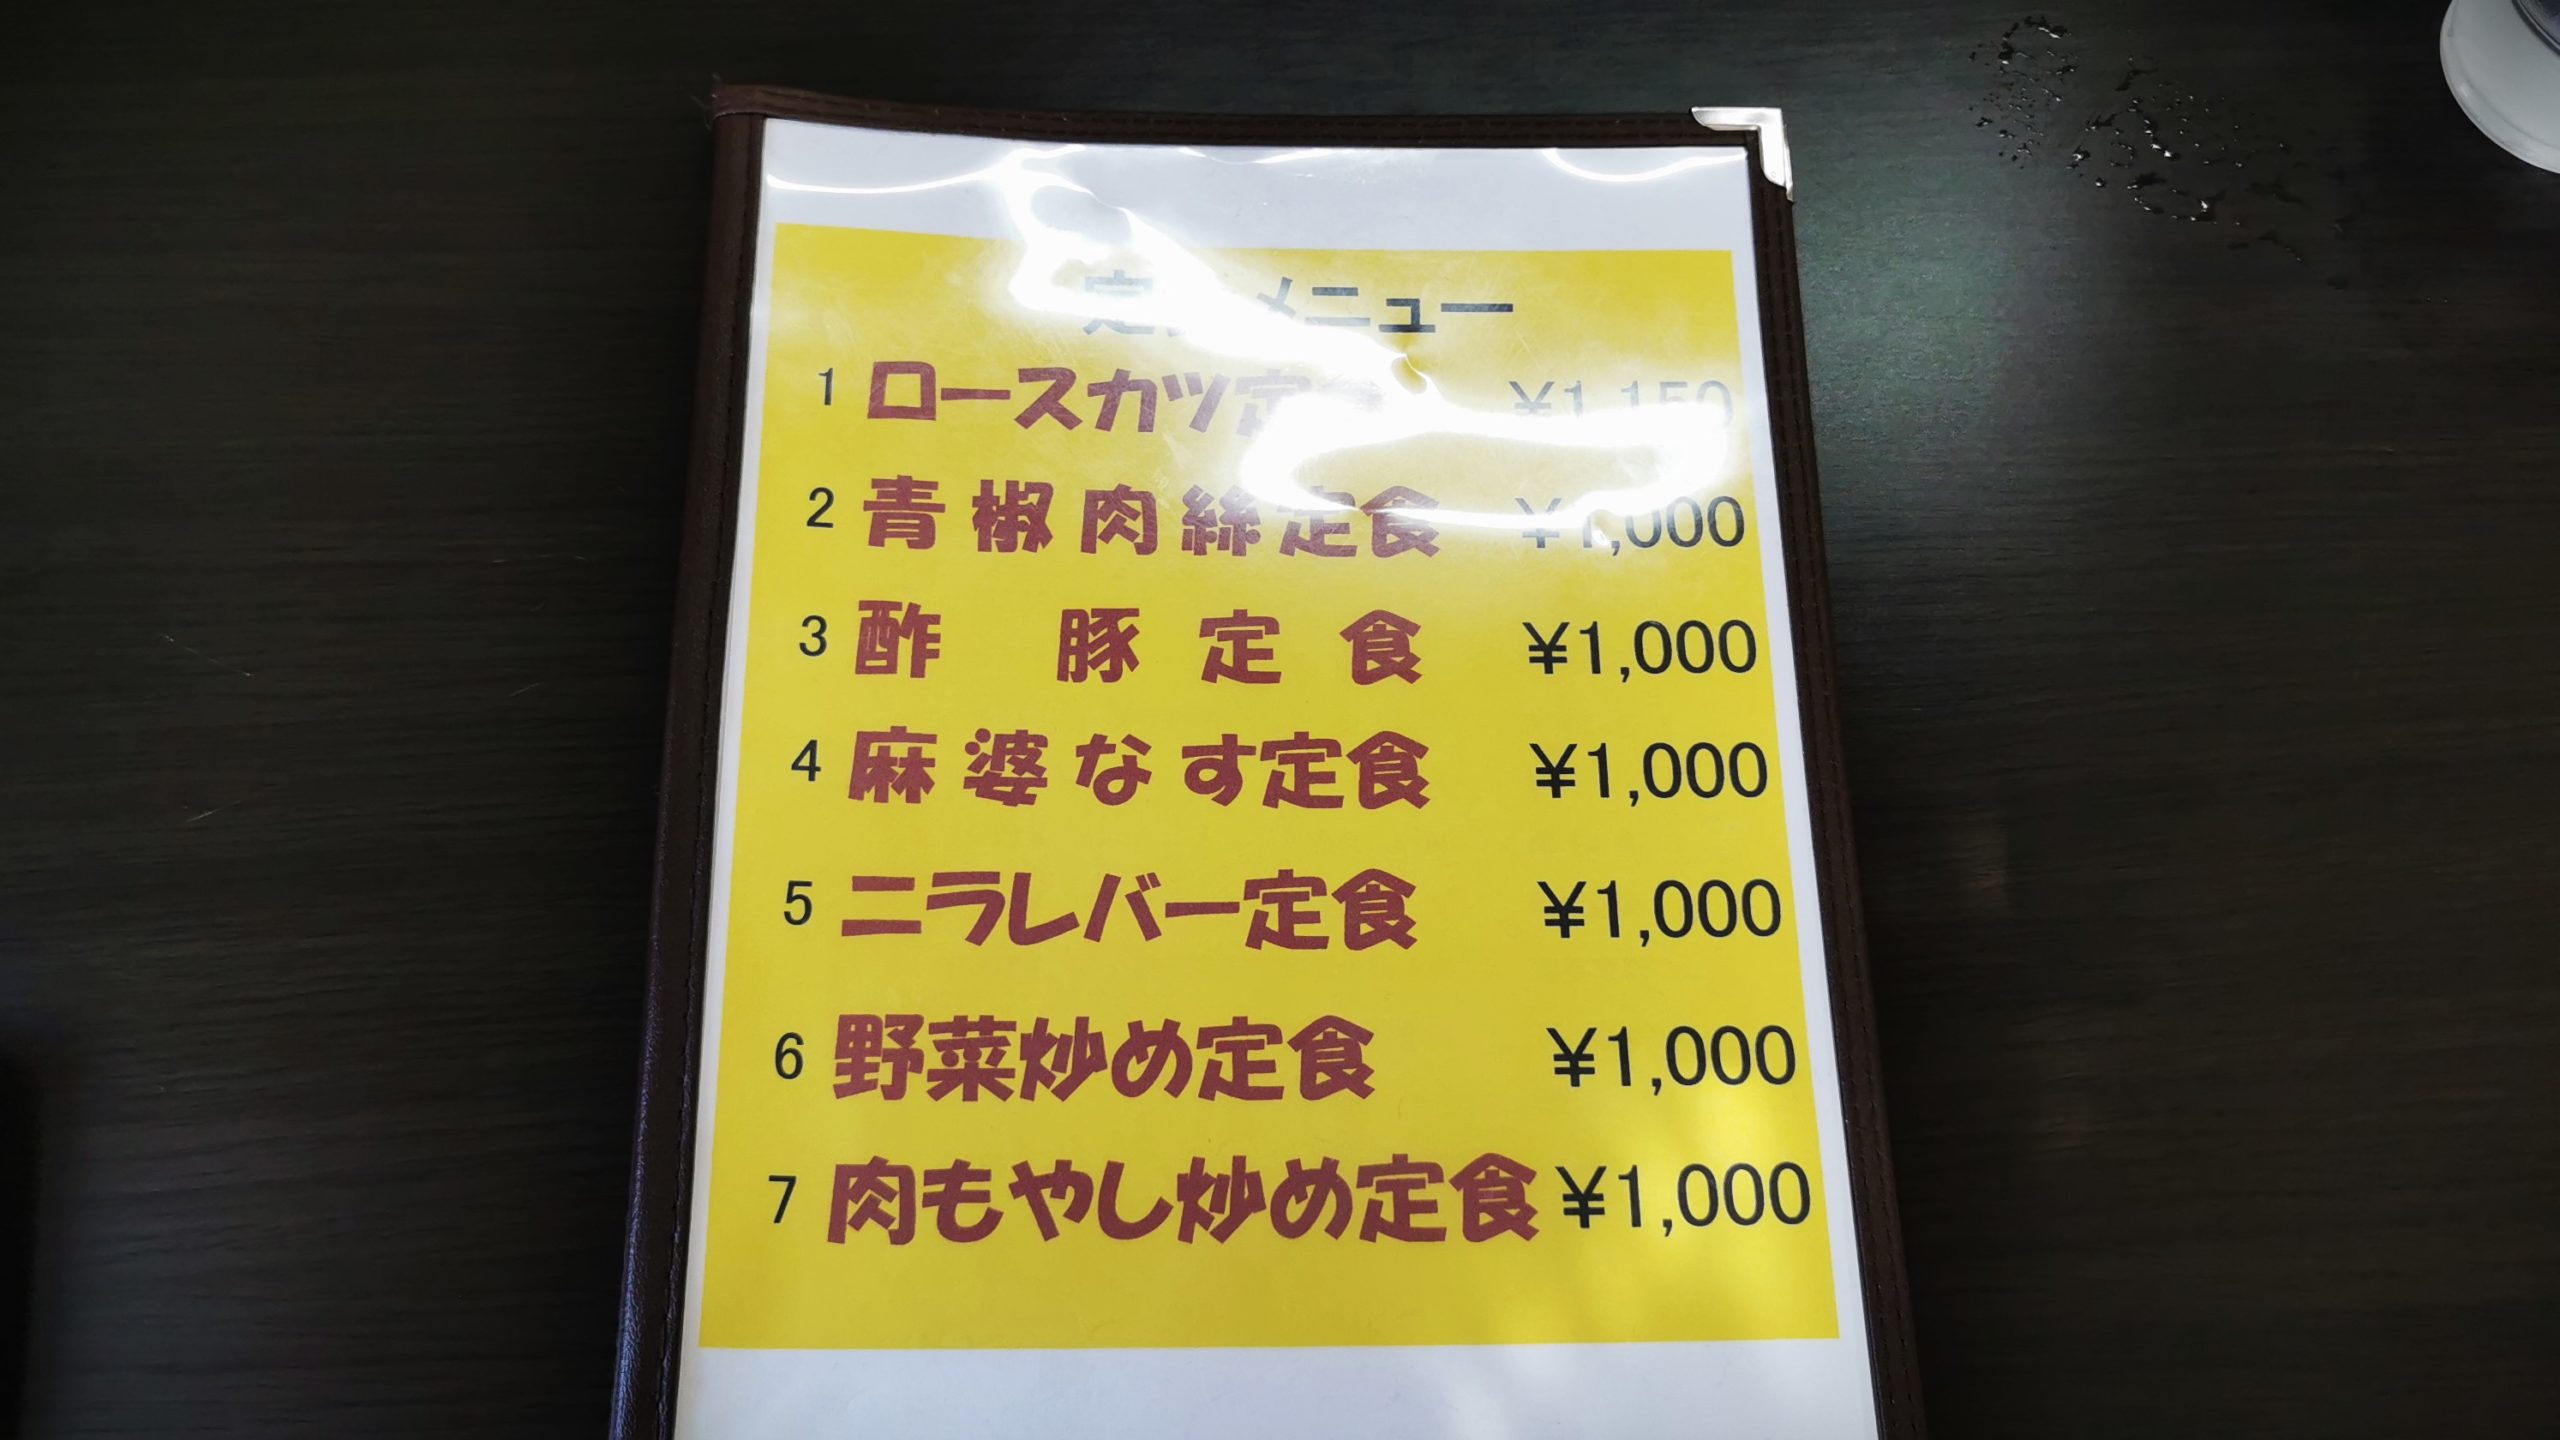 定食メニュー
1 ロースカツ定食 ¥1,150
2 青椒肉絲定食 ¥1,000
3 酢豚定食 ¥1,000
4 麻婆なす定食 ¥1,000
5 ニラレバー定食 ¥1,000
6 野菜炒め定食 ¥1,000
7 肉もやし炒め定食 ¥1,000